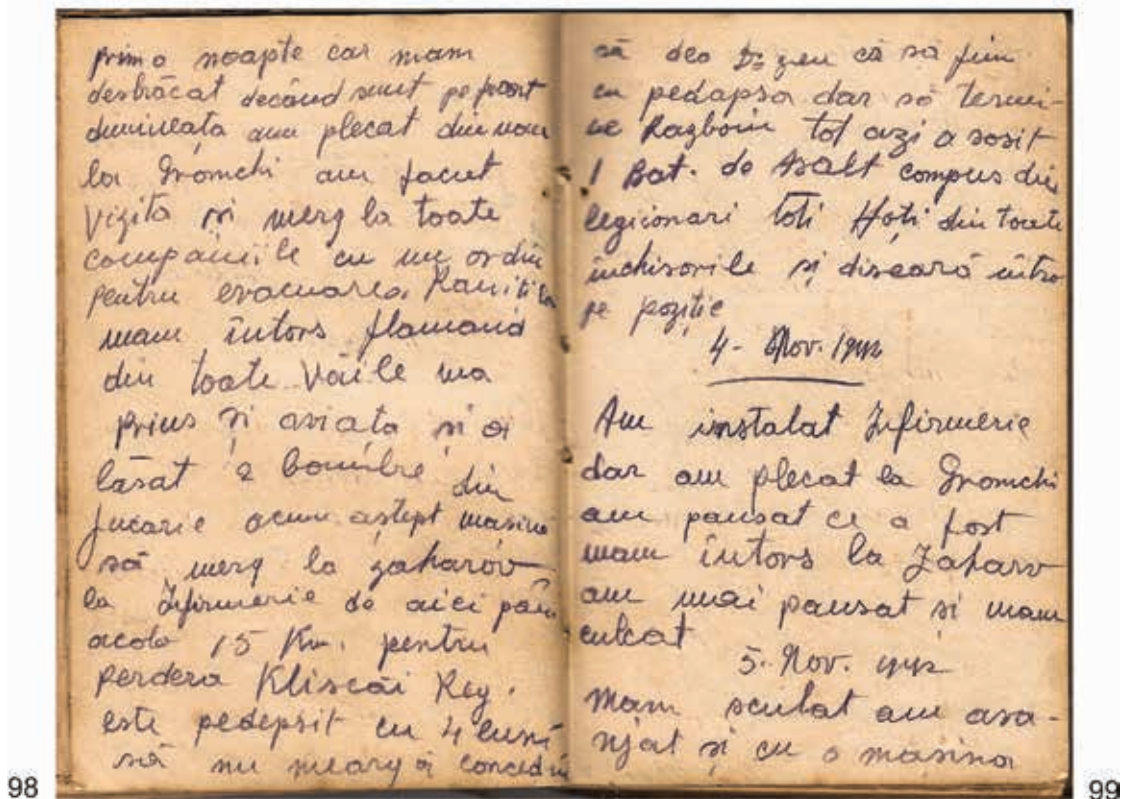 prima noapte car mam
desbrăcat decând sunt pe front
dimineața am plecat din nou
la Gromchi am facut
Vizita și merg la toate
companiile cu un ordin
pentru evacuarea Raniti
mam întors flamand
din toate Văile ma
prins și aviata și a
lăsat 2 bombre din
fucarie acum aștept masina
să merg la zaharov
la Infirmerie de aici până
acolo 15 Km. pentru
perdera Kliscăi Reg.
este pedepsit cu 4 luni
să nu mearga concediu
98
să dea Dzeu că să fim
cu pedapsa dar să termi-
ne Razboiu tot azi a sosit
1 Bat. de Asalt compus din
legionari toti Hoți din toate
închisorile și diseară intra
pe poziție
4- Nov. 1942
Am instalat Infirmerie
dar am plecat la Gromchi
am pansat ce a fost
mam întors la Zaharo
am mai pansat si mam
culcat
5. Nov. 1942
Mam sculat am ara-
njat și cu o masina
99